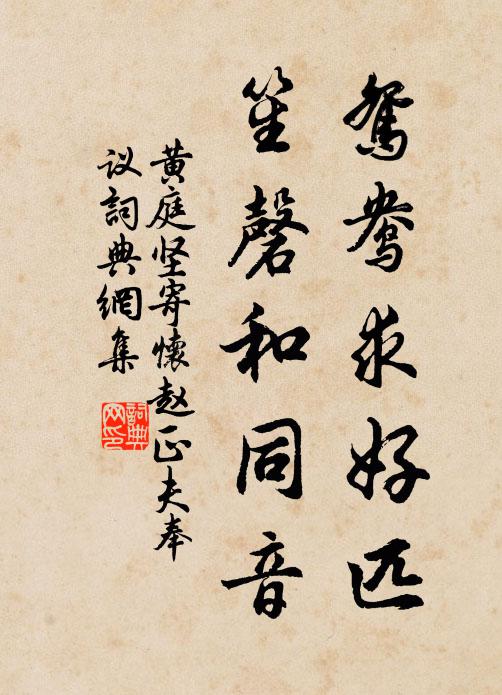 鸳鸯求好匹
笙磬和同音
黄庭坚寄懷赵正夫奉
议詞典網集
詞典网印